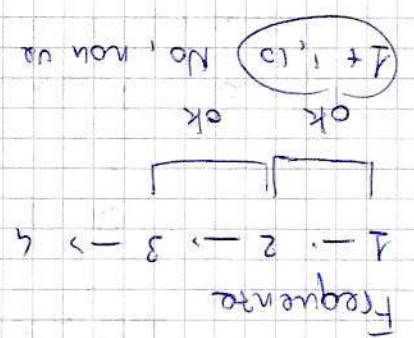 Frequenze
1 -> 2 -> 3 -> 4
ok ok
No, non va